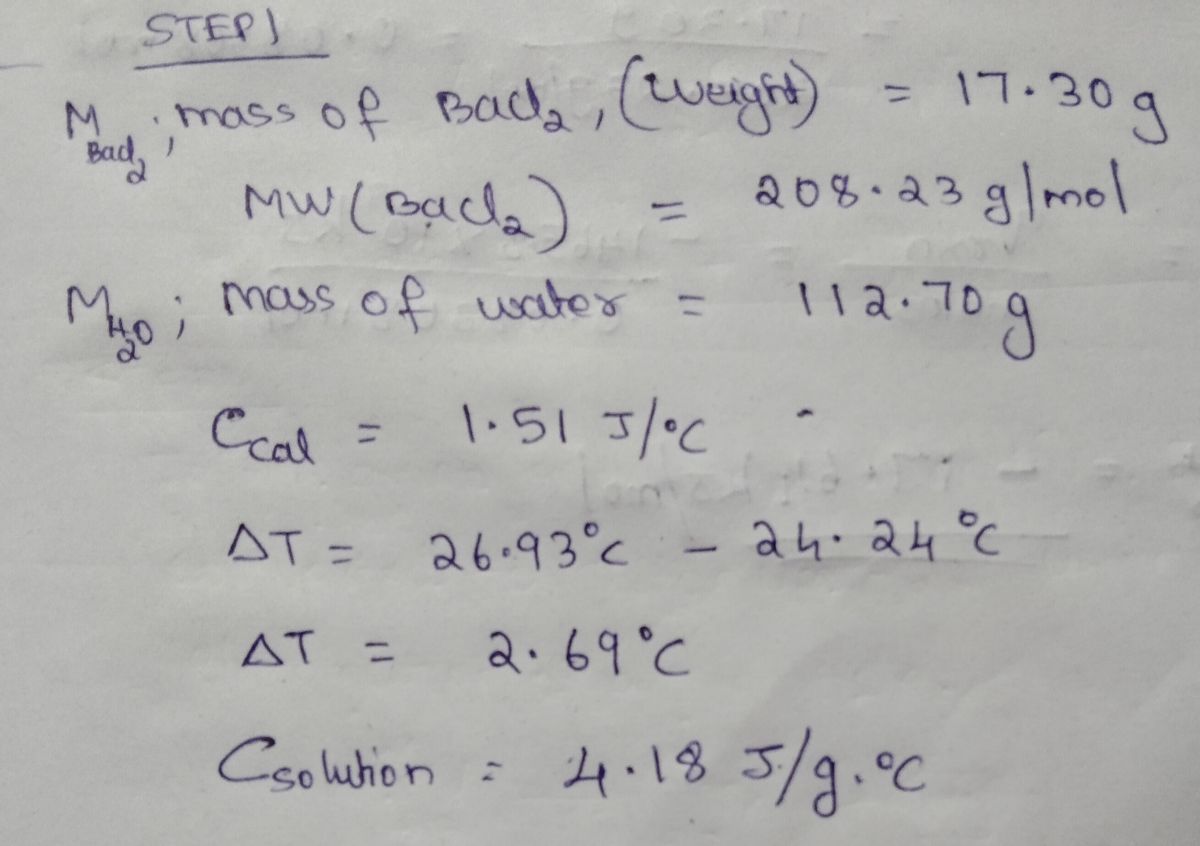 STEP 1
M BaCl₂ ; mass of BaCl₂, (weight) = 17.30 g
MW (BaCl₂) = 208.23 g/mol
M H₂O ; mass of water = 112.70 g
Ccal = 1.51 J/°C
ΔT = 26.93°C - 24.24°C
ΔT = 2.69°C
Csolution = 4.18 J/g.°C